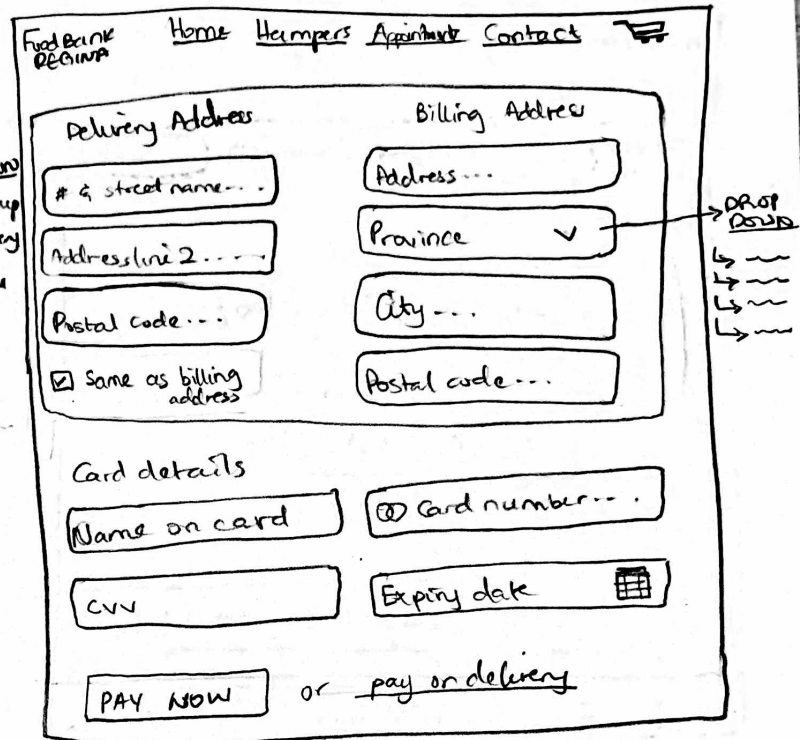 Food Bank
REGINA
Home
Hampers
Appointments
Contact
Delivery Address
# & street name...
Address line 2.....
Postal code...
Same as billing
address
Billing Address
Address...
Province
City...
Postal code...
DROP
DOWN
Card details
Name on card
Card number....
CVV
Expiry date
PAY NOW or pay on delivery